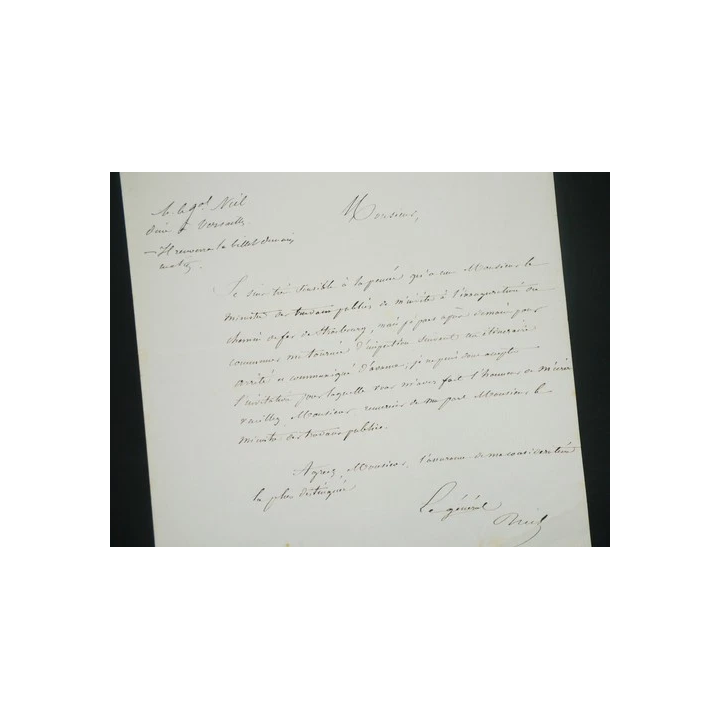 M. le gal Niel
à Versailles.
— Il renverra le billet demain
matin.
Monsieur,
Je suis très sensible à la pensée qu'a eue Monsieur le
ministre des travaux publics de m'inviter à l'inauguration du
chemin de fer de Strasbourg, mais je pars après demain pour
commencer ma tournée d'inspection suivant un itinéraire
arrêté et communiqué d'avance, je ne puis donc accepter
l'invitation pour laquelle vous m'avez fait l'honneur de m'écrire
veuillez, Monsieur, remercier de ma part Monsieur le
ministre des travaux publics.
Agréez, Monsieur, l'assurance de ma considération
la plus distinguée
Le général
Niel